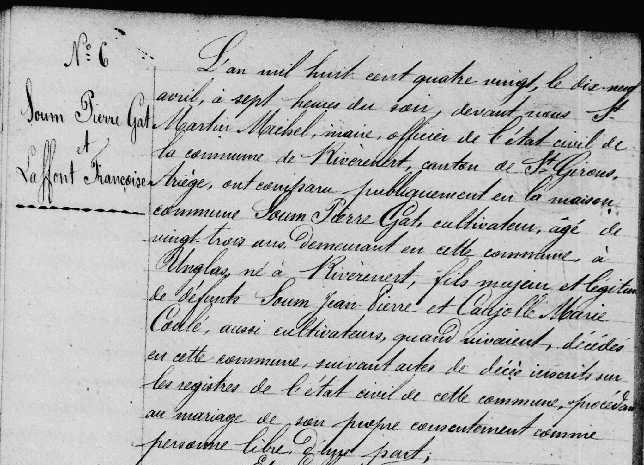 N° 6
Soum Pierre Gat
et
Laffont Françoise
L'an mil huit cent quatre vingt, le dix-neuf
avril, à sept heures du soir, devant nous St
Martin Michel, maire, officier de l'état civil de
la commune de Rivèrenert, canton de St Girons,
Ariège, ont comparu publiquement en la maison
commune Soum Pierre Gat, cultivateur, âgé de
vingt-trois ans demeurant en cette commune à
né à Rivèrenert, fils majeur et légitime
de défunts Soum Jean Pierre et Cadjolle Marie
aussi cultivateurs, quand vivaient, décédés
en cette commune, suivant actes de décès inscrits sur
les registres de l'état civil de cette commune, procédant
au mariage de son propre consentement comme
personne libre d'une part;